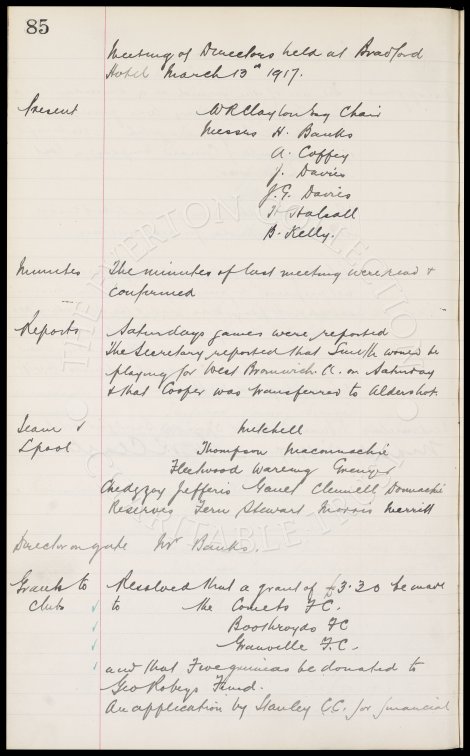 85
Meeting of Directors held at Bradford
Hotel March 13th 1917.
Present W R Clayton Esq Chair
Messrs H. Banks
A. Coffey
J. Davies
J. G. Davies
H Halsall
B. Kelly.
Minutes The minutes of last meeting were read &
confirmed
Reports Saturdays games were reported
The Secretary reported that Smith would be
playing for West Bromwich A. on Saturday
& that Cooper was transferred to Aldershot.
Team v Mitchell
Lpool Thompson Maconnachie
Fleetwood Wareing Grenyer
Chedgzoy Jefferis Gault Clennell Donnachie
Reserves Fern Stewart Morris Merritt
Director on gate Mr Banks.
Grants to Resolved that a grant of £3.3.0 be made
clubs to the Comets FC.
Boothroyds FC
Granville F.C.
and that Five guineas be donated to
Geo Robeys Fund.
An application by Stanley C.C. for financial
THE EVERTON COLLECTION
CHARITABLE TRUST